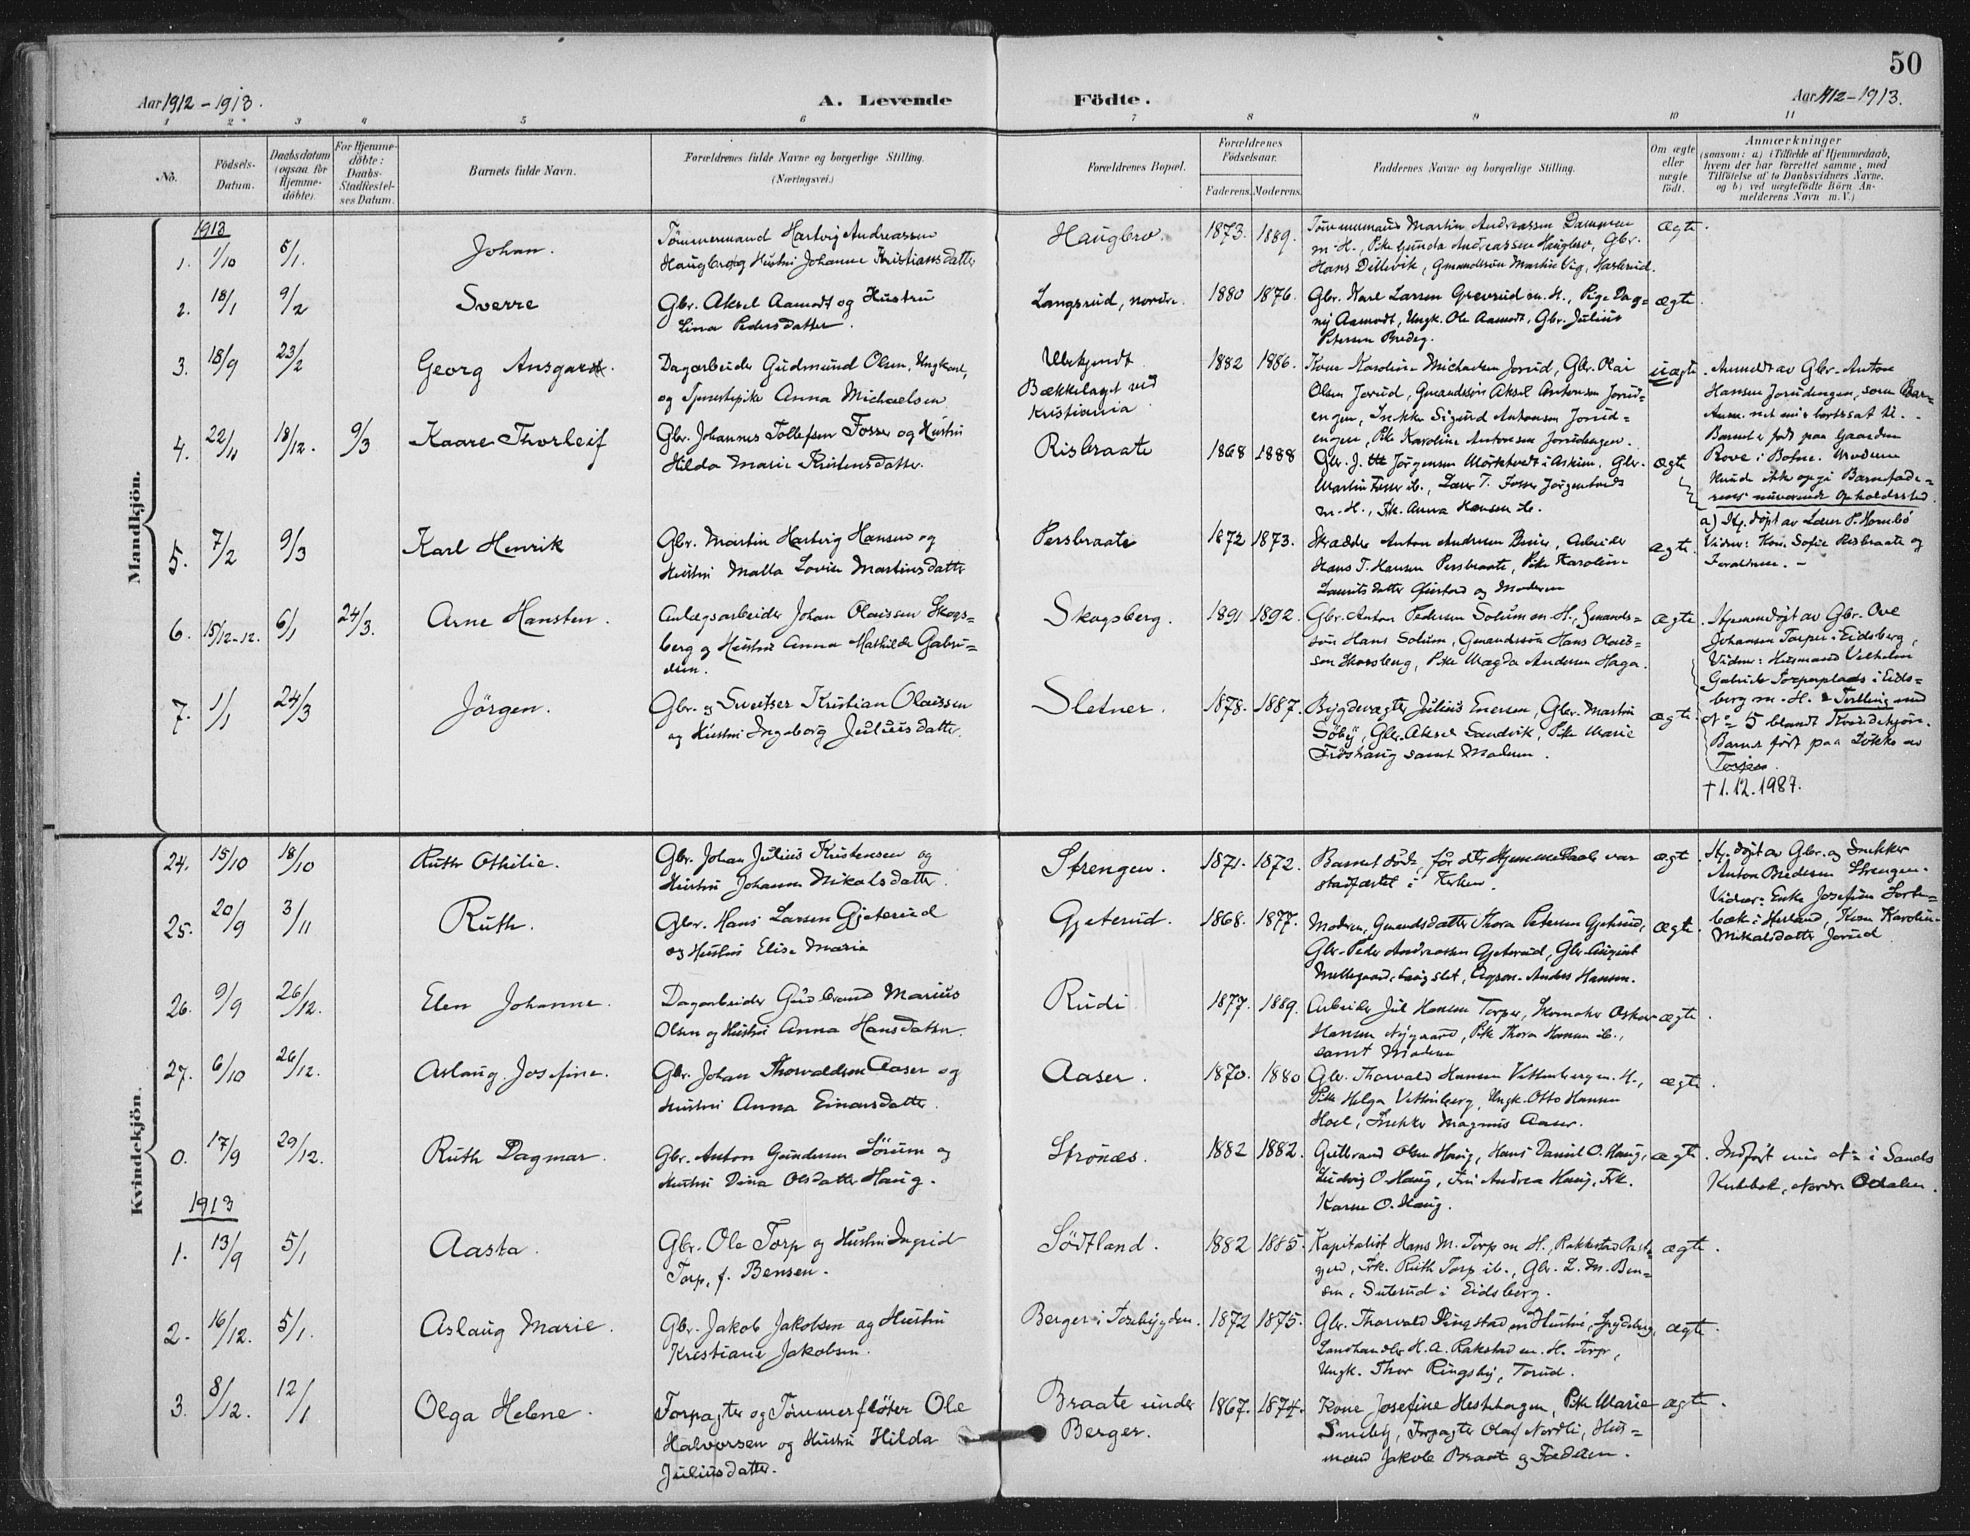 50
Aar 1912 - 1913.
A. Levende
Födte.
Aar 1912 - 1913.
1 2 3 4 5 6 7 8 9 10 11
No.
Födsels-
Datum.
Daabsdatum
(ogsaa for
Hjemme-
döbte).
For Hjemme-
döbte:
Daabs-
Stadfæstel-
ses Datum.
Barnets fulde Navn.
Forældrenes fulde Navne og borgerlige Stilling.
(Næringsvei.)
Forældrenes Bopæl.
Forældrenes
Födselsaar.
Faderens. Moderens.
Faddernes Navne og borgerlige Stilling.
Om ægte
eller
uægte
födt.
Anmærkninger
(saasom: a) i Tilfælde af Hjemmedaab,
hvem der har forrettet samme, med
Tilföielse af to Daabsvidners Navne,
og b) ved uægtefödte Börn An-
melderens Navn m. V.)
Mandkjön.
1913
1. 1/10 5/1. Johan.
Tømmermand Hartvig Andreassen
Haugbro og Hustru Johanne Kristiansdatter
Haugbro. 1873. 1889.
Tømmermand Martin Andreassen Dammen
m. H., Pike Gunda Andreassen Haugbro, Gbr.
Hans Dillevik, Gmandssøn Martin Vig, Haslerud.
ægte
2. 18/1 9/2 Sverre
Gbr. Aksel Aamodt og Hustru
Lina Pedersdatter.
Langsrud, nordre. 1880 1876.
Gbr. Karl Larsen Grevrud m. H., Pige Dag-
ny Aamodt, Ungk. Ole Aamodt, Gbr. Julius
Petersen Bredeg.
ægte
3. 18/9 23/2 Georg Ansgar.
Dagarbeider Gudmund Olsen, Ungkarl,
og Tjenestepike Anna Michaelsen
Ubekjendt
Bækkelaget ved
Kristiania.
1882 1886.
Kone Karoline Michaelsen Jorud, Gbr. Olai
Olsen Jorud, Gmandssøn Aksel Antonsen Jorud-
engen, Snekker Sigurd Antonsen Jorud-
engen, Pike Karoline Antonsen Jorudengen.
uægte
Anmeldt av Gbr. Anton
Hansen Jorudengen, som Bar-
net er bortsat til.
Barnet er født paa Gaarden
Rove i Botne. Moderen
kunde ikke opgi Barnefade-
rens nuværende Opholdssted.
4. 22/11 18/12. 9/3 Kaare Thorleif
Gbr. Johannes Tollefsen Fosser og Hustru
Hilda Marie Kristensdatter.
Risbraate 1868 1888
Gbr. J. Jørgensen Mörktvedt i Askim, Gbr.
Martin Fosser ib., Lærer T. Fosser Jørgentvedt
m. H., Frk. Anna Hansen ib.
ægte
a) Hj. døpt av Lærer P. Hornbö
Vidner: Kone Sofie Risbraate og
Forældrene. -
5. 7/2 9/3 Karl Henrik
Gbr. Martin Hartvig Hansen og
Hustru Malla Lovise Martinsdatter
Persbraate 1872 1873.
Skrædder Anton Andresen Buer, Arbeider
Hans T. Hansen Persbraate, Pike Karoline
Lauritsdatter Gustad og Moderen
ægte.
6. 15/12-12. 6/1 24/3. Arne Hansten.
Anlægsarbeider Johan Olaussen Skogs-
berg og Hustru Anna Mathilde Gabri-
elsen.
Skogsberg. 1891 1892.
Gbr. Anton Pedersen Solum m. H., Gmands-
søn Hans Solum, Gmandssøn Hans Olaus-
sen Skogsberg, Pike Magda Andersen Haga.
ægte
Hjemmedøpt av Gbr. Ole
Johansen Torper i Eidsberg,
Vidner: Husmand Vilhelm
Gabriels Torperplads i Eids-
berg m. H. Tvilling med
No 5 blandt Kvindekjøn.
Barnet født paa Løkke av
Torper.
† 1.12.1987.
7. 1/1 24/3 Jörgen.
Gbr. og Sveitser Kristian Olaussen
og Hustru Ingeborg Juliusdatter.
Sletner. 1878. 1887.
Bygdevægter Julius Enersen, Gbr. Martin
Søby, Gbr. Aksel Sandvik, Pike Marie
Fidshaug samt Moderen.
ægte
Kvindekjön.
24. 15/10 18/10 Ruth Othilie.
Gbr. Johan Julius Kristensen og
Hustru Johanne Nikolsdatter.
Strengen. 1871. 1872.
Barnet døde, før dets Hjemmedaab var
stadfæstet i Kirken.
ægte
Hj. døpt av Gbr. og Snekker
Anton Bredesen Strengen.
Vidner: Enke Josefine Sort-
bæk i Herland, Kone Karoline
Mikalsdatter Jorud
25. 20/9 3/11 Ruth.
Gbr. Hans Larsen Gjeterud
og Hustru Elise Marie
Gjeterud. 1868. 1877.
Moderen, Gmandsdatter Thora Petersen Gjeterud,
Gbr. Peder Andreassen Gjeterud, Gbr. August
Mellegaard, Langslet, Anders Hansen.
ægte
26. 9/9 26/12. Elen Johanne.
Dagarbeider Gudbrand Marius
Olsen og Hustru Anna Hansdatter.
Rudi 1877. 1889.
Arbeider Jul Hansen Torper, Skomaker Oskar
Hansen Nygaard, Pike Thora Hansen ib.,
samt Moderen
ægte
27. 6/10 26/12. Aslaug Josefine.
Gbr. Johan Thorvaldsen Aaser og
Hustru Anna Einarsdatter.
Aaser. 1870. 1880
Gbr. Thorvald Hansen Vittenberg m. H.,
Pike Helga Vittenberg, Ungk. Otto Hansen
Hoel, Snekker Magnus Aaser.
ægte
0. 17/9 29/12. Ruth Dagmar.
Gbr. Anton Gundersen Sörum og
Hustru Dina Olsdatter Haug.
Strönæs. 1882 1882.
Gulbrand Olsen Haug, Hans Daniel O. Haug,
Ludvig O. Haug, Fru Andrea Haug, Frk.
Karen O. Haug.
ægte
Indført uden No i Sands
Kirkebok, Nordre Odalen.
1913
1. 13/9 5/1 Aasta.
Gbr. Ole Torp og Hustru Ingrid
Torp, f. Bensen.
Södtland. 1882 1885.
Kapitalist Hans M. Torp m. H., Rakkestad Prest-
gjeld, Frk. Ruth Torp ib., Gbr. L. M. Ben-
sen, Suterud i Eidsberg.
ægte
2. 16/12. 5/1. Aslaug Marie.
Gbr. Jakob Jakobsen og Hustru
Kristiane Jakobsen.
Berger i Tosebygden. 1872 1875.
Gbr. Thorvald Ringstad m Hustru, Spydeberg,
Landhandler H. A. Rakstad m. H. Torp,
Ungk. Thor Ringsby, Torud.
ægte
3. 8/12. 12/1 Olga Helene.
Forpagter og Tømmerfløter Ole
Halvorsen og Hustru Hilda
Juliusdatter.
Braate under
Berger.
1867. 1874.
Kone Josefine Hesthagen, Pike Marie
Smeby, Forpagter Olaf Nordli, Hus-
mand Jakob Braate og Faderen.
ægte